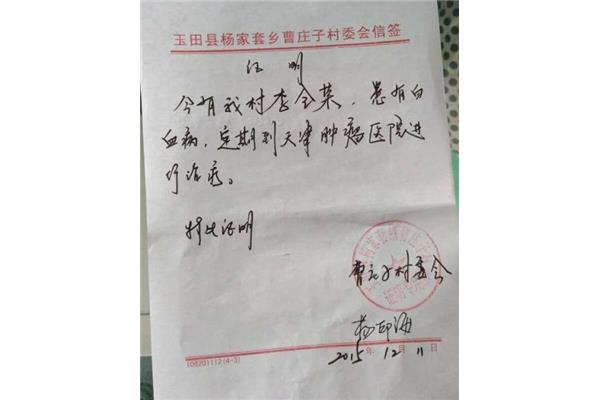 玉田县杨家套乡曹庄子村委会信签
证明
今有我村李全荣,患有白
血病,定期到天津肿瘤医院进
行治疗。
特此证明
曹庄子村委会
2015年12月11日
108201112(4-3)